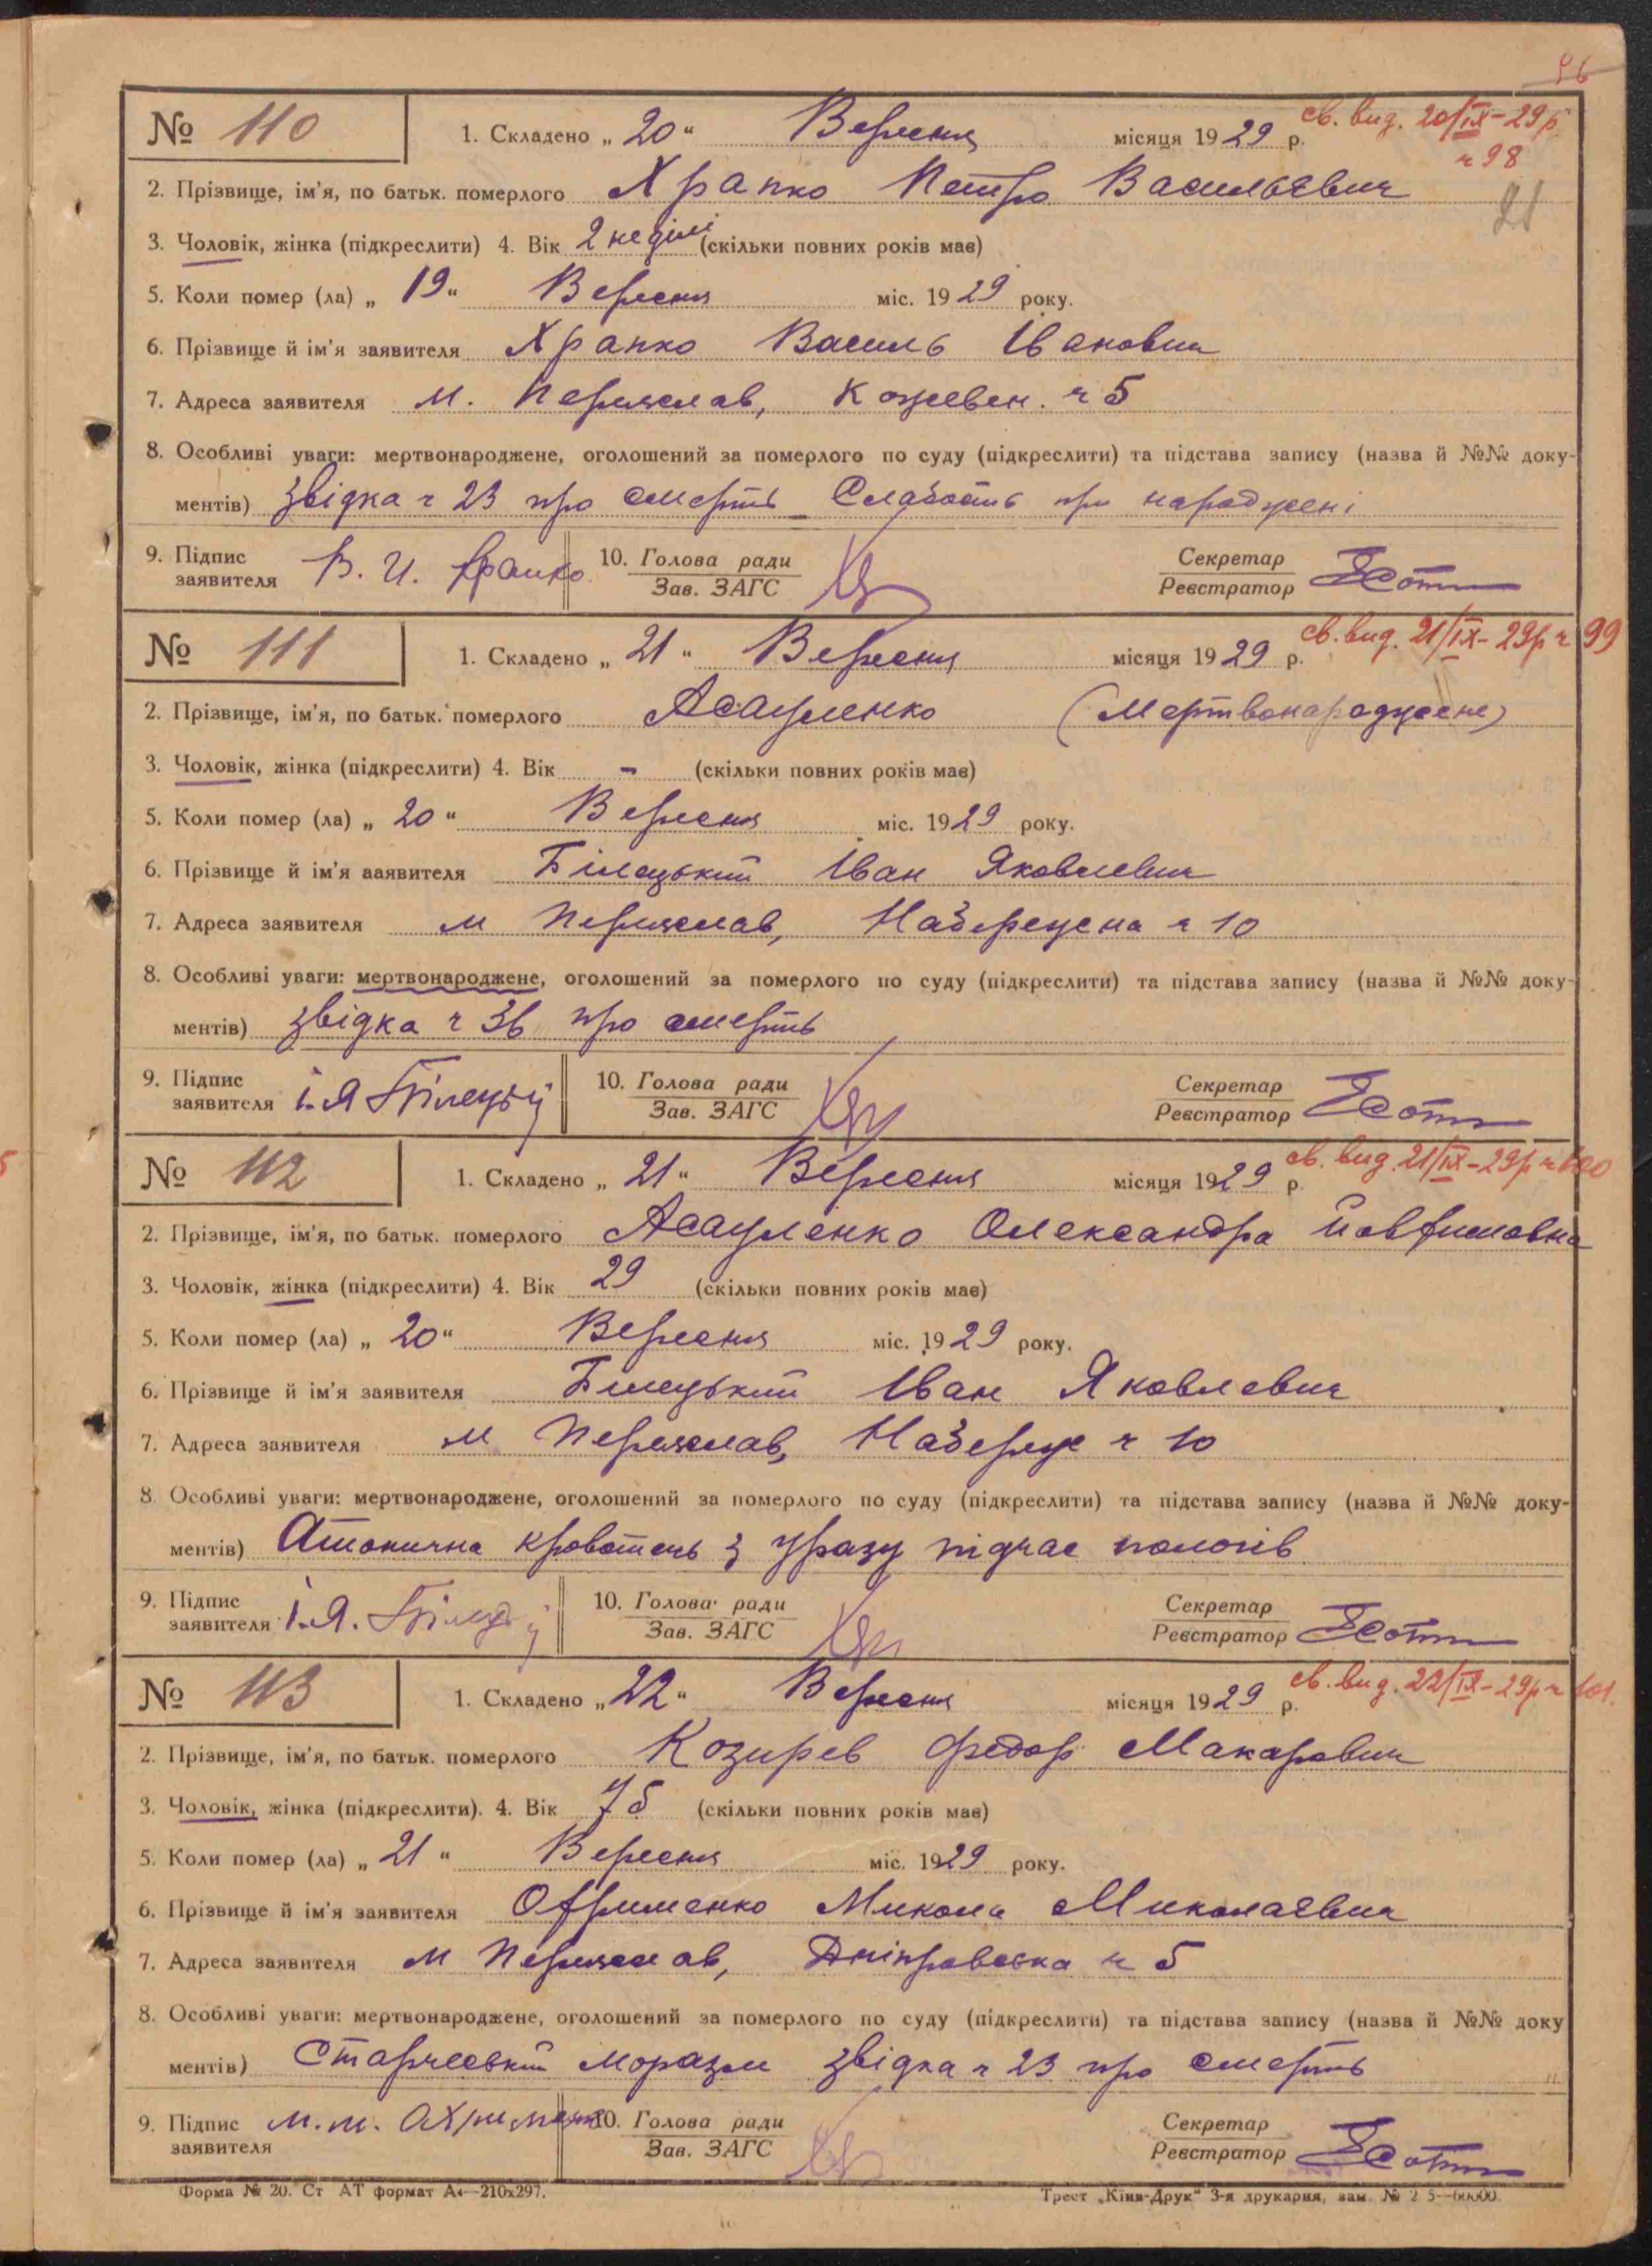 96
№ 110 1. Складено „ 20 “ Вересня місяця 1929 р. св. вид. 20/IX-29р
ч 98
2. Прізвище, ім’я, по батьк. померлого Храпко Петро Васильєвич
21
3. Чоловік, жінка (підкреслити) 4. Вік 2 неділі (скільки повних років має)
5. Коли помер (ла) „ 19 “ Вересня міс. 1929 року.
6. Прізвище й ім’я заявителя Храпко Василь Іванович
7. Адреса заявителя м. Переяслав, Кожевен. ч 5
8. Особливі уваги: мертвонароджене, оголошений за померлого по суду (підкреслити) та підстава запису (назва й №№ доку-
ментів) Звідка ч 23 про смерть Слабость при народжені
9. Підпис заявителя В. И. Храпко 10. Голова ради Зав. ЗАГС Секретар Реєстратор
№ 111 1. Складено „ 21 “ Вересня місяця 1929 р. св. вид. 21/IX-29р ч 99
2. Прізвище, ім’я, по батьк. померлого Асауленко (Мертвонароджене)
3. Чоловік, жінка (підкреслити) 4. Вік - (скільки повних років має)
5. Коли помер (ла) „ 20 “ Вересня міс. 1929 року.
6. Прізвище й ім’я ааявителя Білецький Іван Яковлевич
7. Адреса заявителя м Переяслав, Набережна ч 10
8. Особливі уваги: мертвонароджене, оголошений за померлого по суду (підкреслити) та підстава запису (назва й №№ доку-
ментів) Звідка ч 36 про смерть
9. Підпис заявителя І. Я Білецький 10. Голова ради Зав. ЗАГС Секретар Реєстратор
№ 112 1. Складено „ 21 “ Вересня місяця 1929 р. св. вид. 21/IX-29р ч 100
2. Прізвище, ім’я, по батьк. померлого Асауленко Олександра Йовфимовна
3. Чоловік, жінка (підкреслити) 4. Вік 29 (скільки повних років має)
5. Коли помер (ла) „ 20 “ Вересня міс. 1929 року.
6. Прізвище й ім’я заявителя Білецький Іван Яковлевич
7. Адреса заявителя м Переяслав, Набереж ч 10
8. Особливі уваги: мертвонароджене, оголошений за померлого по суду (підкреслити) та підстава запису (назва й №№ доку-
ментів) Атонична кровотечь з уразу підчас пологів
9. Підпис заявителя І. Я. Білецький 10. Голова ради Зав. ЗАГС Секретар Реєстратор
№ 113 1. Складено „ 22 “ Вересня місяця 1929 р. св. вид. 22/IX-29р ч 101.
2. Прізвище, ім’я, по батьк. померлого Козирев Федор Макарович
3. Чоловік, жінка (підкреслити). 4. Вік 75 (скільки повних років має)
5. Коли помер (ла) „ 21 “ Вересня міс. 1929 року.
6. Прізвище й ім’я заявителя Офрименко Микола Миколаєвич
7. Адреса заявителя м Переяслав, Дніпровська ч 5
8. Особливі уваги: мертвонароджене, оголошений за померлого по суду (підкреслити) та підстава запису (назва й №№ доку
ментів) Старческий моразм звідка ч 23 про смерть
9. Підпис заявителя М. М. 10. Голова ради Зав. ЗАГС Секретар Реєстратор
Форма № 20. Ст АТ формат А4—210х297. Трест „Київ-Друк“ 3-я друкарня, зам. №